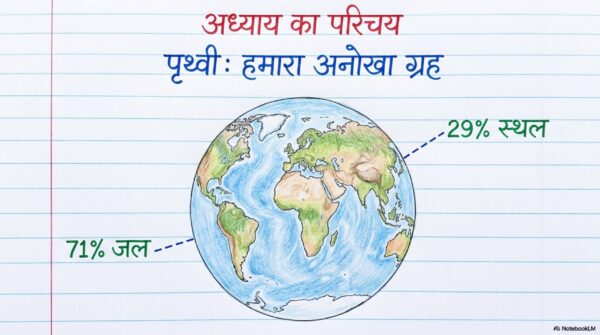 अध्याय का परिचय
पृथ्वी: हमारा अनोखा ग्रह
29% स्थल
71% जल
NotebookLM